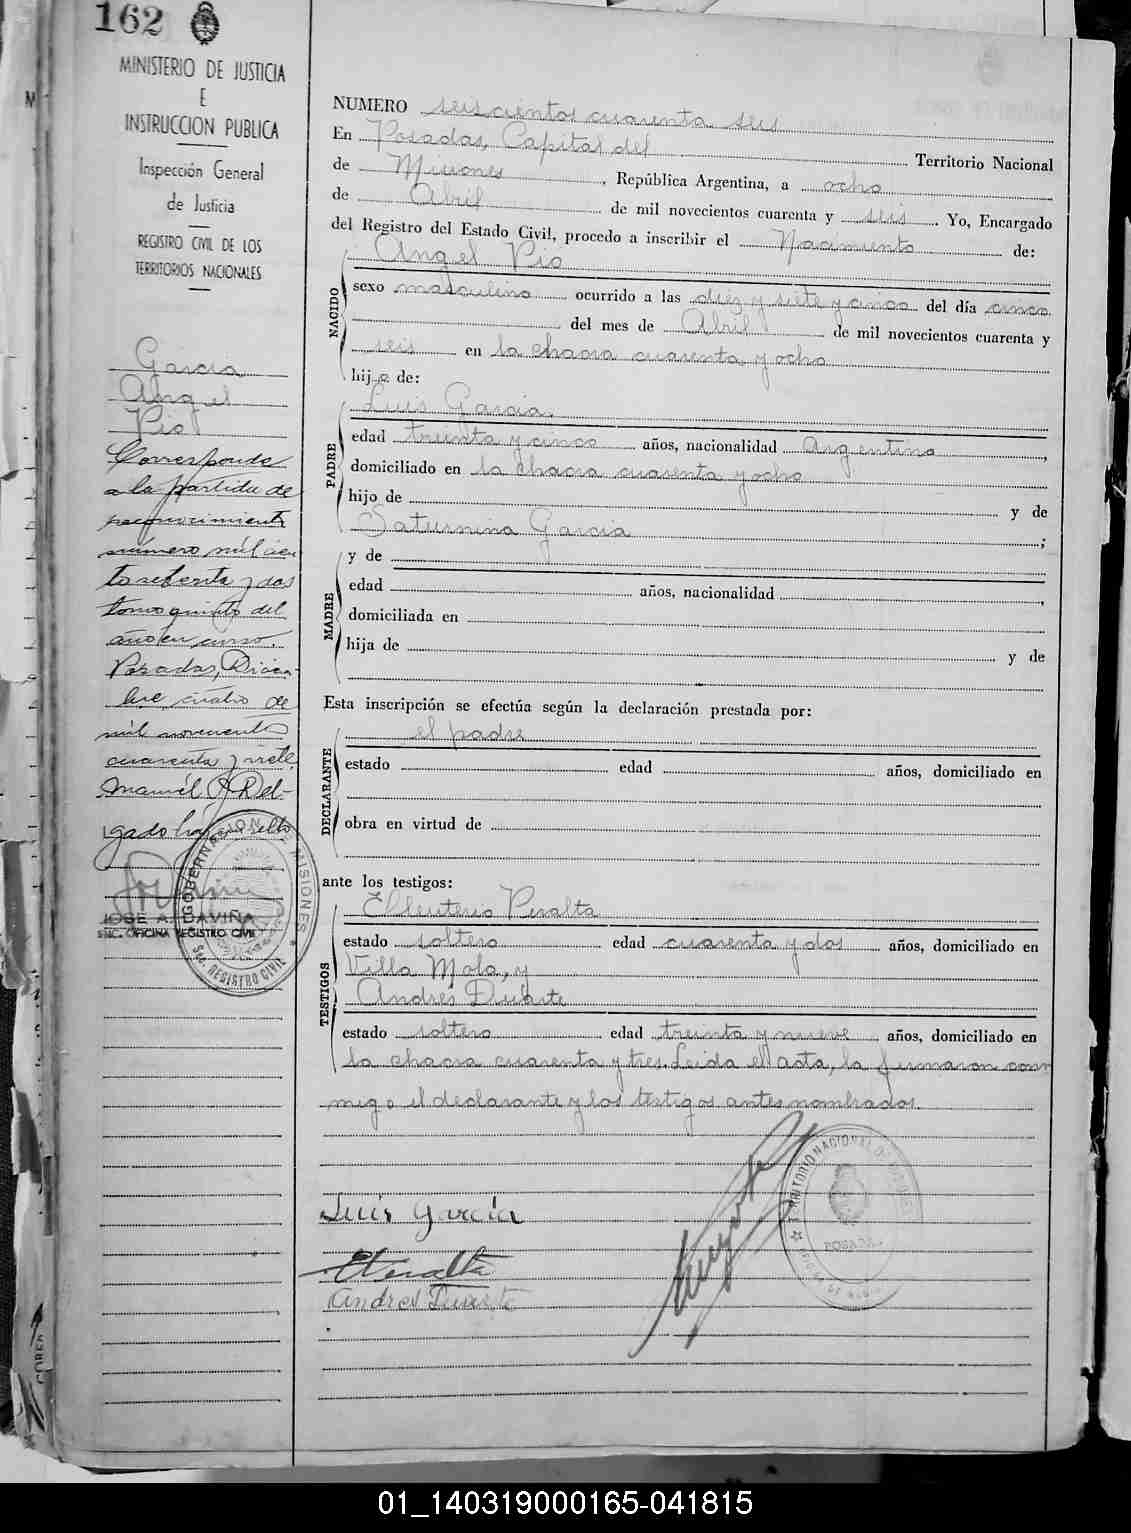 162
MINISTERIO DE JUSTICIA
E
INSTRUCCION PUBLICA
Inspección General
de Justicia
REGISTRO CIVIL DE LOS
TERRITORIOS NACIONALES
Garcia
Angel
Pio
Corresponde
a la partida de
reconocimiento
número mil cien
to setenta y dos
tomo quinto del
año en curso.
Posadas, Diciem
bre cuatro de
mil novecientos
cuarenta y siete.
Manuel A. Del-
gado hijo sello
JOSE A. GAVIÑA
ENC. OFICINA REGISTRO CIVIL
GOBERNACION DE MISIONES
Sec. REGISTRO CIVIL
NUMERO seiscientos cuarenta seis
En Posadas, Capital del Territorio Nacional
de Misiones, República Argentina, a ocho
de Abril de mil novecientos cuarenta y seis. Yo, Encargado
del Registro del Estado Civil, procedo a inscribir el Nacimiento de:
NACIDO
Angel Pio
sexo masculino ocurrido a las diez y siete y cinco del día cinco
del mes de Abril de mil novecientos cuarenta y
seis en la chacra cuarenta y ocho
hijo de:
PADRE
Luis Garcia
edad treinta y cinco años, nacionalidad Argentina,
domiciliado en la chacra cuarenta y ocho
hijo de y de
Saturnina Garcia;
MADRE
y de
edad años, nacionalidad,
domiciliada en
hija de y de
Esta inscripción se efectúa según la declaración prestada por:
DECLARANTE
el padre
estado edad años, domiciliado en
obra en virtud de
ante los testigos:
TESTIGOS
Elleuterio Peralta
estado soltero edad cuarenta y dos años, domiciliado en
Villa Mola, y
Andrés Duarte
estado soltero edad treinta y nueve años, domiciliado en
la chacra cuarenta y tres. Leida el acta, la firmaron con
migo el declarante y los testigos antes nombrados.
Luis Garcia
EPeralta
Andres Duarte
TERRITORIO NACIONAL DE MISIONES
POSADAS
01_140319000165-041815